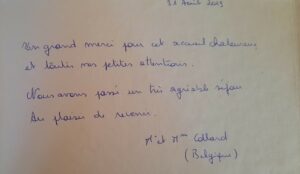 Août
Un grand merci pour cet accueil chaleureux
et toutes vos petites attentions.
Nous avons passé un très agréable séjour
Au plaisir de revenir.
Mr et Mme Collard
(Belgique)